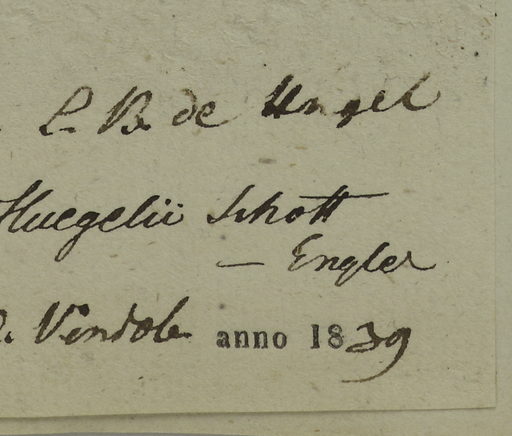 L. B. de Hügel
Huegelii Schott
— Engler
Vindob. anno 1839